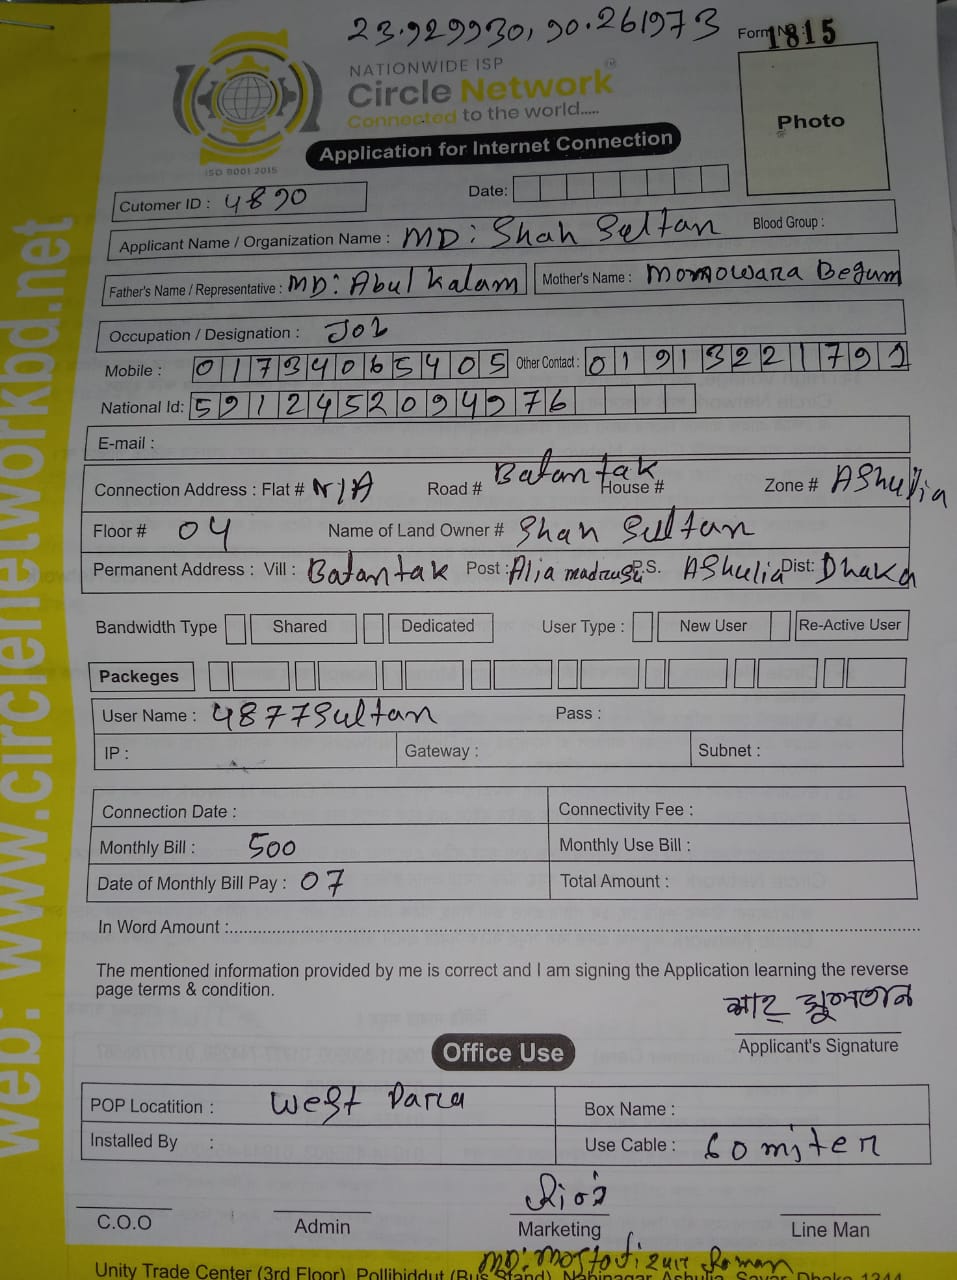 23.929930, 90.261973
Form No: 1815
NATIONWIDE ISP
Circle Network
Connected to the world.....
ISO 9001 2015
Photo
Application for Internet Connection
Cutomer ID : 4890
Date:
Applicant Name / Organization Name : MD: Shah Sultan Blood Group :
Father's Name / Representative : MD: Abul Kalam Mother's Name : Momowara Begum
Occupation / Designation : Job
Mobile : 01734065405 Other Contact : 01913221791
National Id: 5912452094976
E-mail :
Connection Address : Flat # N/A Road # Batantak House # Zone # AShulia
Floor # 04 Name of Land Owner # Shah Sultan
Permanent Address : Vill : Batantak Post : Alia P.S. AShulia Dist: Dhaka
Bandwidth Type Shared Dedicated User Type : New User Re-Active User
Packeges
User Name : 4877Sultan Pass :
IP : Gateway : Subnet :
Connection Date : Connectivity Fee :
Monthly Bill : 500 Monthly Use Bill :
Date of Monthly Bill Pay : 07 Total Amount :
In Word Amount :
The mentioned information provided by me is correct and I am signing the Application learning the reverse
page terms & condition.
শাহ্ সুলতান
Applicant's Signature
Office Use
POP Locatition : West Para Box Name :
Installed By : Use Cable : 60 miter
C.O.O Admin Marketing Line Man
MD: Mostafizur Roman
Unity Trade Center (3rd Floor), Pollibiddut (Bus Stand), Nabinagar, Ashulia, Savar, Dhaka-1344
web: www.circlenetworkbd.net